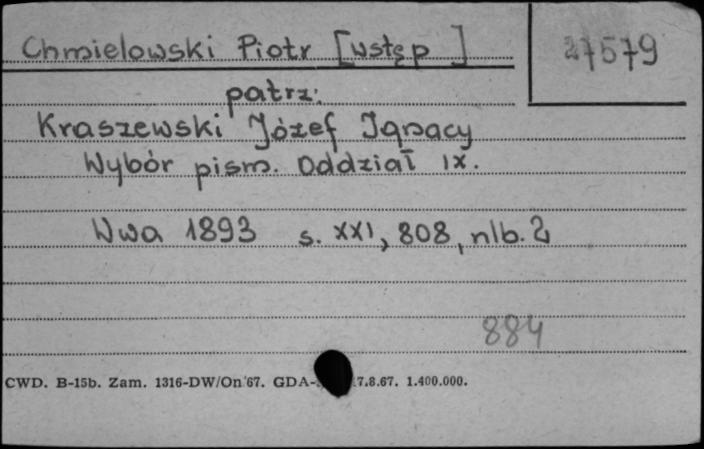 Chmielowski Piotr [wstęp]
27579
patrz:
Kraszewski Józef Ignacy
Wybór pism. Oddział IX.
Wwa 1893 s. XXI, 808, nlb. 2
884
CWD. B-15b. Zam. 1316-DW/On 67. GDA- 7.8.67. 1.400.000.